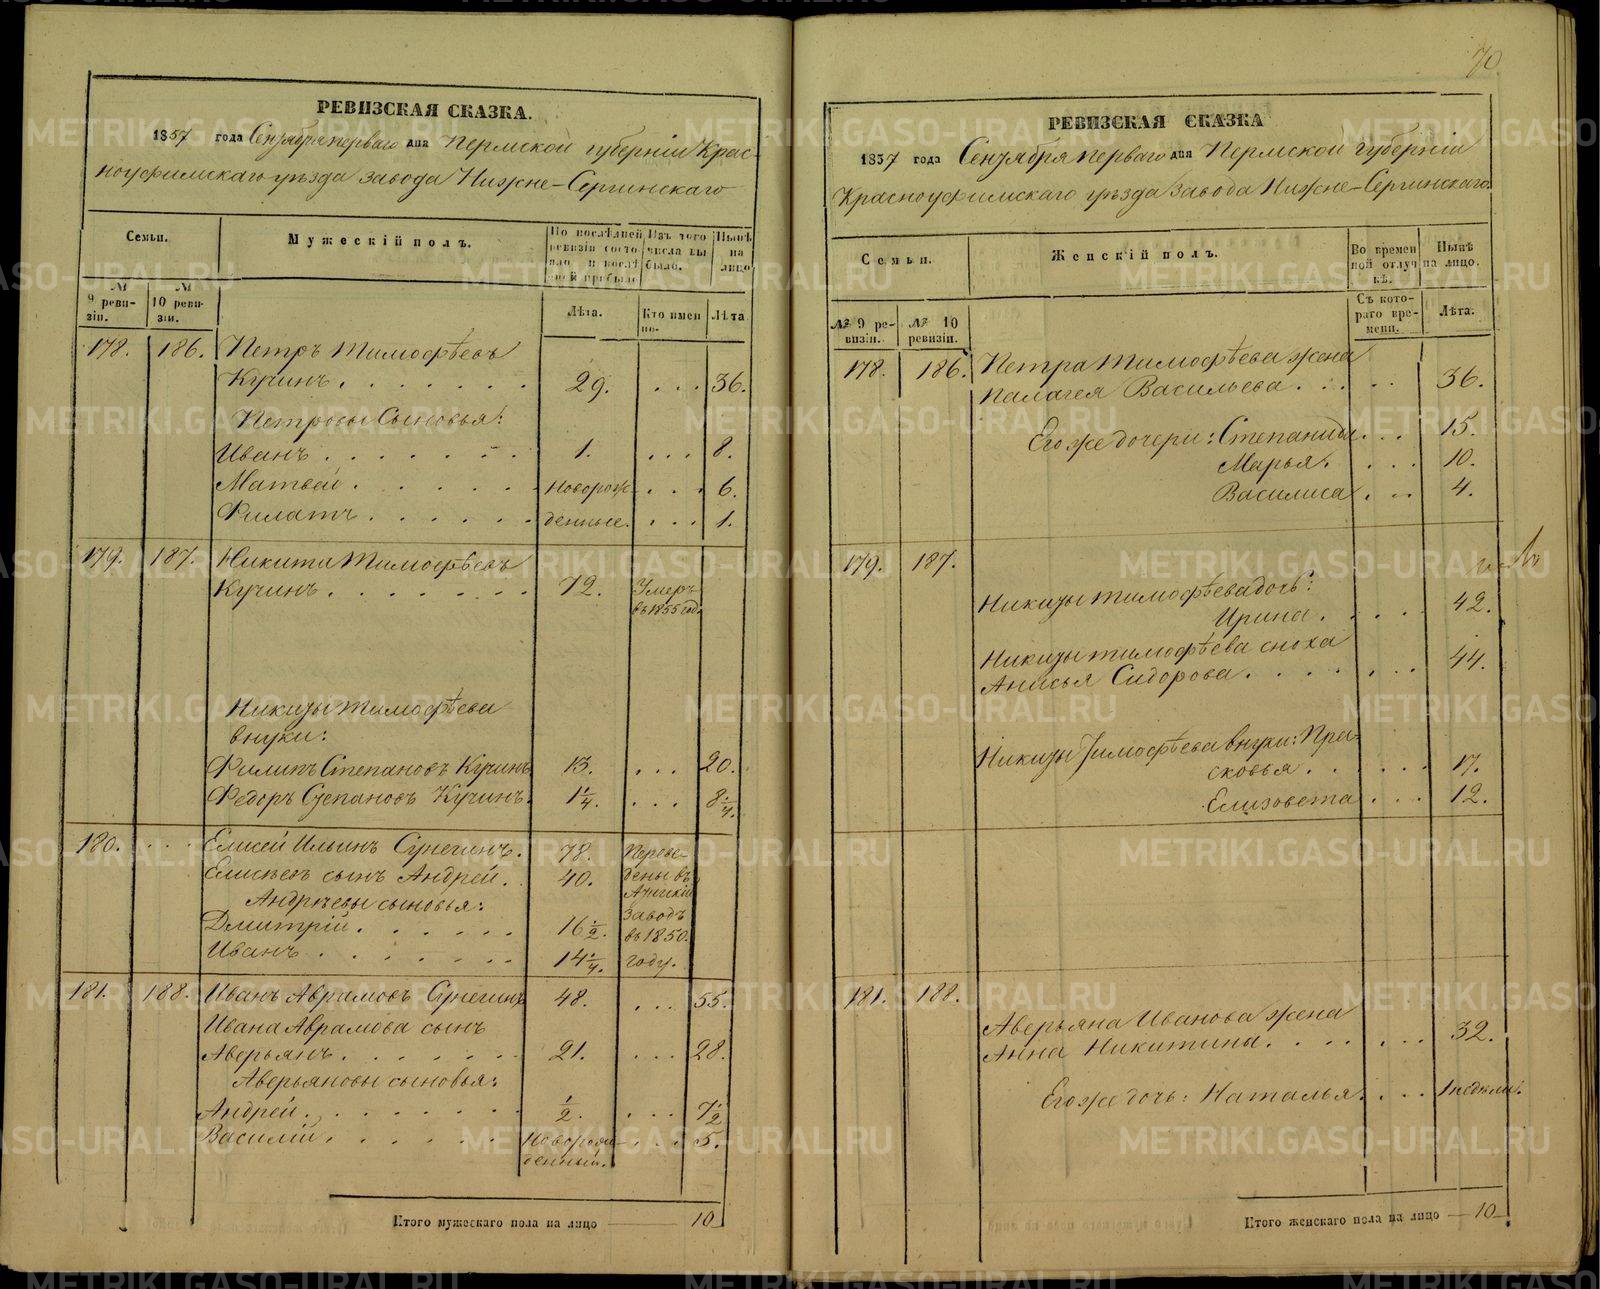 РЕВИЗСКАЯ СКАЗКА.
1857 года Сентября перваго дня Пермской губерніи Крас-
ноуфимскаго уѣзда завода Нижне-Сергинскаго
Семьи.
Мужескій полъ.
По послѣдней ревизіи состояло и послѣ ней прибыло
Изъ того числа выбыло.
Нынѣ на лицо
№ 9 ревизіи.
№ 10 ревизіи.
Лѣта.
Кто именно.
Лѣта
178. 186. Петръ Тимофѣевъ
Кучинъ. 29. ... 36.
Петровы Сыновья:
Иванъ 1. ... 8.
Матвѣй новорож- ... 6.
Филатъ денные. ... 1.
179. 187. Никита Тимофѣевъ
Кучинъ. 72. Умеръ
въ 1855 год.
Никиты Тимофѣева
внуки:
Филипъ Степановъ Кучинъ 13. ... 20.
Федоръ Степановъ Кучинъ. 1 1/4. ... 8 1/4.
180. ... Елисей Ильинъ Сунегинъ. 78. Переве-
Елисѣевъ сынъ Андрей. 40. дены въ
Андреевы сыновья: Атигскій
Дмитрій. 16 1/2. заводъ
въ 1850.
Иванъ 14 1/4. году.
181. 188. Иванъ Аврамовъ Сунегинъ 48. ... 55.
Ивана Аврамова сынъ
Аверьянъ. 21. ... 28.
Аверьяновы сыновья:
Андрей. 1/2. ... 7 1/2
Василій. Новорож- ... 5.
денный.
Итого мужескаго пола на лицо 10
70
РЕВИЗСКАЯ СКАЗКА
1857 года Сентября перваго дня Пермской губерніи
Красноуфимскаго уѣзда завода Нижне-Сергинскаго.
Семьи.
Женскій полъ.
Во временной отлучкѣ.
Нынѣ на лицо.
№ 9 ревизіи.
№ 10 ревизіи.
Съ котораго времени.
Лѣта.
178. 186. Петра Тимофѣева жена
Палагея Васильева. 36.
Его же дочери: Степанида 15.
Марья. 10.
Василиса 4.
179. 187.
Никиты Тимофѣева дочь:
Ирина. 42.
Никиты Тимофѣева сноха
Анисья Сидорова. 44.
Никиты Тимофѣева внуки: Пра-
сковья. 17.
Елизовета 12.
181. 188.
Аверьяна Иванова жена
Анна Никитина. 32.
Его же дочь: Наталья. 1 недѣли.
Итого женскаго пола на лицо 10
METRIKI.GASO-URAL.RU